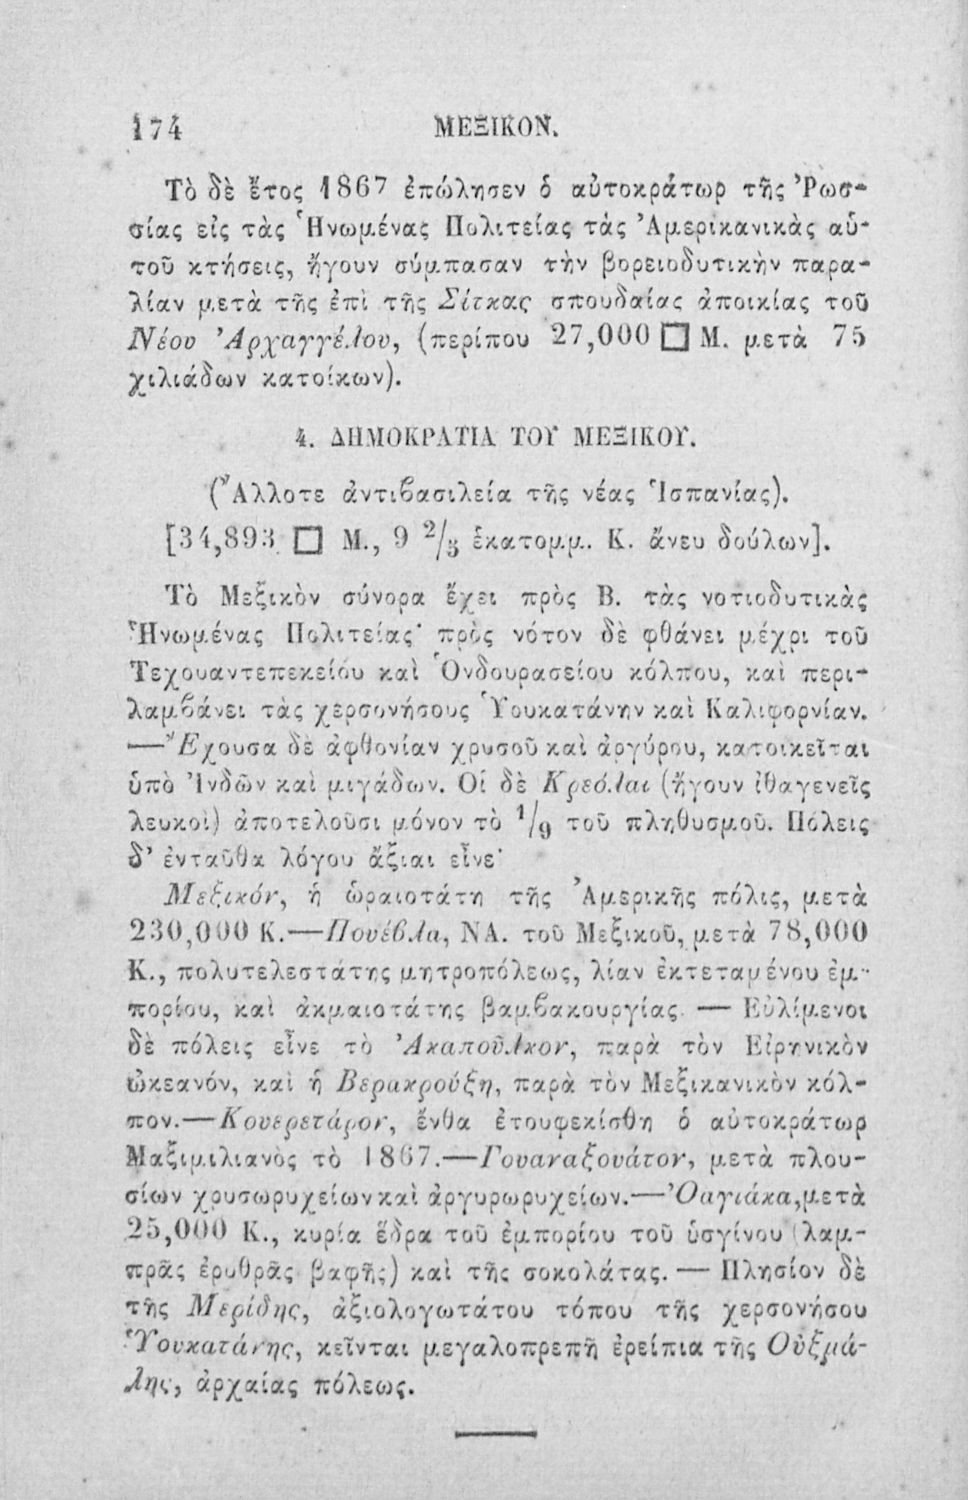 174 ΜΕΞΙΚΟΝ.
Τὸ δὲ ἔτος 1867 ἐπώλησεν ὁ αὐτοκράτωρ τῆς Ῥωσ-
σίας εἰς τὰς Ἡνωμένας Πολιτείας τὰς Ἀμερικανικὰς αὑ-
τοῦ κτήσεις, ἤγουν σύμπασαν τὴν βορειοδυτικὴν παρα-
λίαν μετὰ τῆς ἐπὶ τῆς Σίτκας σπουδαίας ἀποικίας τοῦ
Νέου Ἀρχαγγέλου, (περίπου 27,000 □ Μ. μετὰ 75
χιλιάδων κατοίκων).
4. ΔΗΜΟΚΡΑΤΙΑ ΤΟΥ ΜΕΞΙΚΟΥ.
(Ἄλλοτε ἀντιβασιλεία τῆς νέας Ἱσπανίας).
[34,893 □ Μ., 9 2/3 ἑκατομμ. Κ. ἄνευ δούλων].
Τὸ Μεξικὸν σύνορα ἔχει πρὸς Β. τὰς νοτιοδυτικὰς
Ἡνωμένας Πολιτείας· πρὸς νότον δὲ φθάνει μέχρι τοῦ
Τεχουαντεπεκείου καὶ Ὁνδουρασείου κόλπου, καὶ περι-
λαμβάνει τὰς χερσονήσους Ὑουκατάνην καὶ Καλιφορνίαν.
—Ἔχουσα δὲ ἀφθονίαν χρυσοῦ καὶ ἀργύρου, κατοικεῖται
ὑπὸ Ἰνδῶν καὶ μιγάδων. Οἱ δὲ Κρεόλαι (ἤγουν ἰθαγενεῖς
λευκοὶ) ἀποτελοῦσι μόνον τὸ 1/9 τοῦ πληθυσμοῦ. Πόλεις
δ' ἐνταῦθα λόγου ἄξιαι εἶνε·
Μεξικόν, ἡ ὡραιοτάτη τῆς Ἀμερικῆς πόλις, μετὰ
230,000 Κ.—Πουέβλα, ΝΑ. τοῦ Μεξικοῦ, μετὰ 78,000
Κ., πολυτελεστάτης μητροπόλεως, λίαν ἐκτεταμένου ἐμ-
πορίου, καὶ ἀκμαιοτάτης βαμβακουργίας. — Εὐλίμενοι
δὲ πόλεις εἶνε τὸ Ἀκαποῦλκον, παρὰ τὸν Εἰρηνικὸν
ὠκεανόν, καὶ ἡ Βερακρούξη, παρὰ τὸν Μεξικανικὸν κόλ-
πον.—Κουερετάρον, ἔνθα ἐτουφεκίσθη ὁ αὐτοκράτωρ
Μαξιμιλιανὸς τὸ 1867.—Γουαναξουάτον, μετὰ πλου-
σίων χρυσωρυχείων καὶ ἀργυρωρυχείων.—Ὀαγιάκα, μετὰ
25,000 Κ., κυρία ἕδρα τοῦ ἐμπορίου τοῦ ὑσγίνου (λαμ-
πρᾶς ἐρυθρᾶς βαφῆς) καὶ τῆς σοκολάτας. — Πλησίον δὲ
τῆς Μερίδης, ἀξιολογωτάτου τόπου τῆς χερσονήσου
Ὑουκατάνης, κεῖνται μεγαλοπρεπῆ ἐρείπια τῆς Οὐξμά-
λης, ἀρχαίας πόλεως.